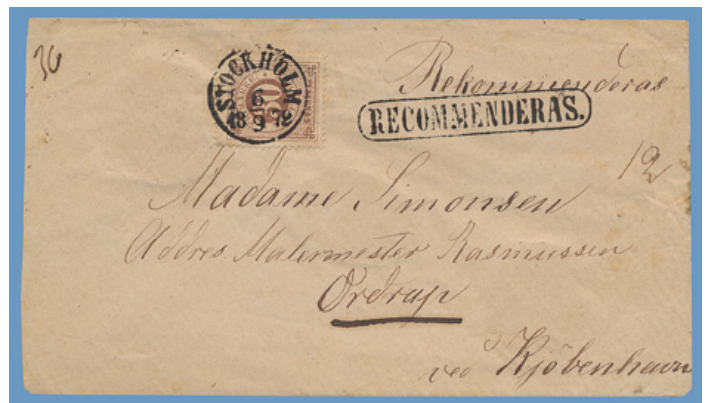 30
STOCKHOLM
6
18 9 72
30
Rekommenderas
RECOMMENDERAS.
12
Madame Simonsen
Addres Malermester Rasmussen
Ordrup
ved Kjöbenhavn